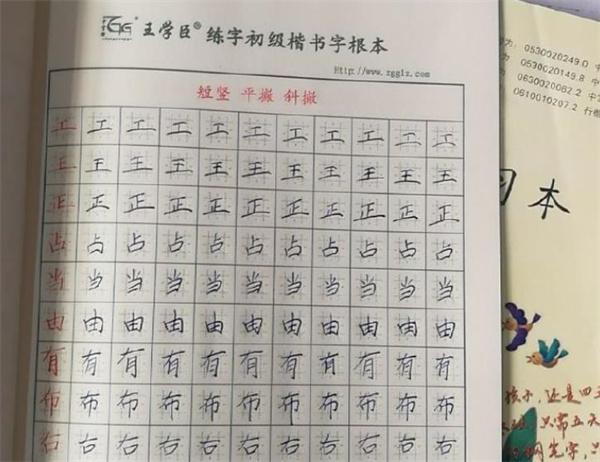 王学臣® 练字初级楷书字根本
Http://www.zgglz.com
短竖 平撇 斜撇
工 工 工 工 工 工 工 工 工 工 工
王 王 王 王 王 王 王 王 王 王 王
正 正 正 正 正 正 正 正 正 正 正
占 占 占 占 占 占 占 占 占 占 占
当 当 当 当 当 当 当 当 当 当 当
由 由 由 由 由 由 由 由 由 由 由
有 有 有 有 有 有 有 有 有 有 有
布 布 布 布 布 布 布 布 布 布 布
右 右 右 右 右 右 右 右 右 右 右
为: 0530020249.0 中
为 0530020149.8 中
0630020062.2 中
0610010207.2 行楷
本
还是四五
只常五天
钢笔字,只